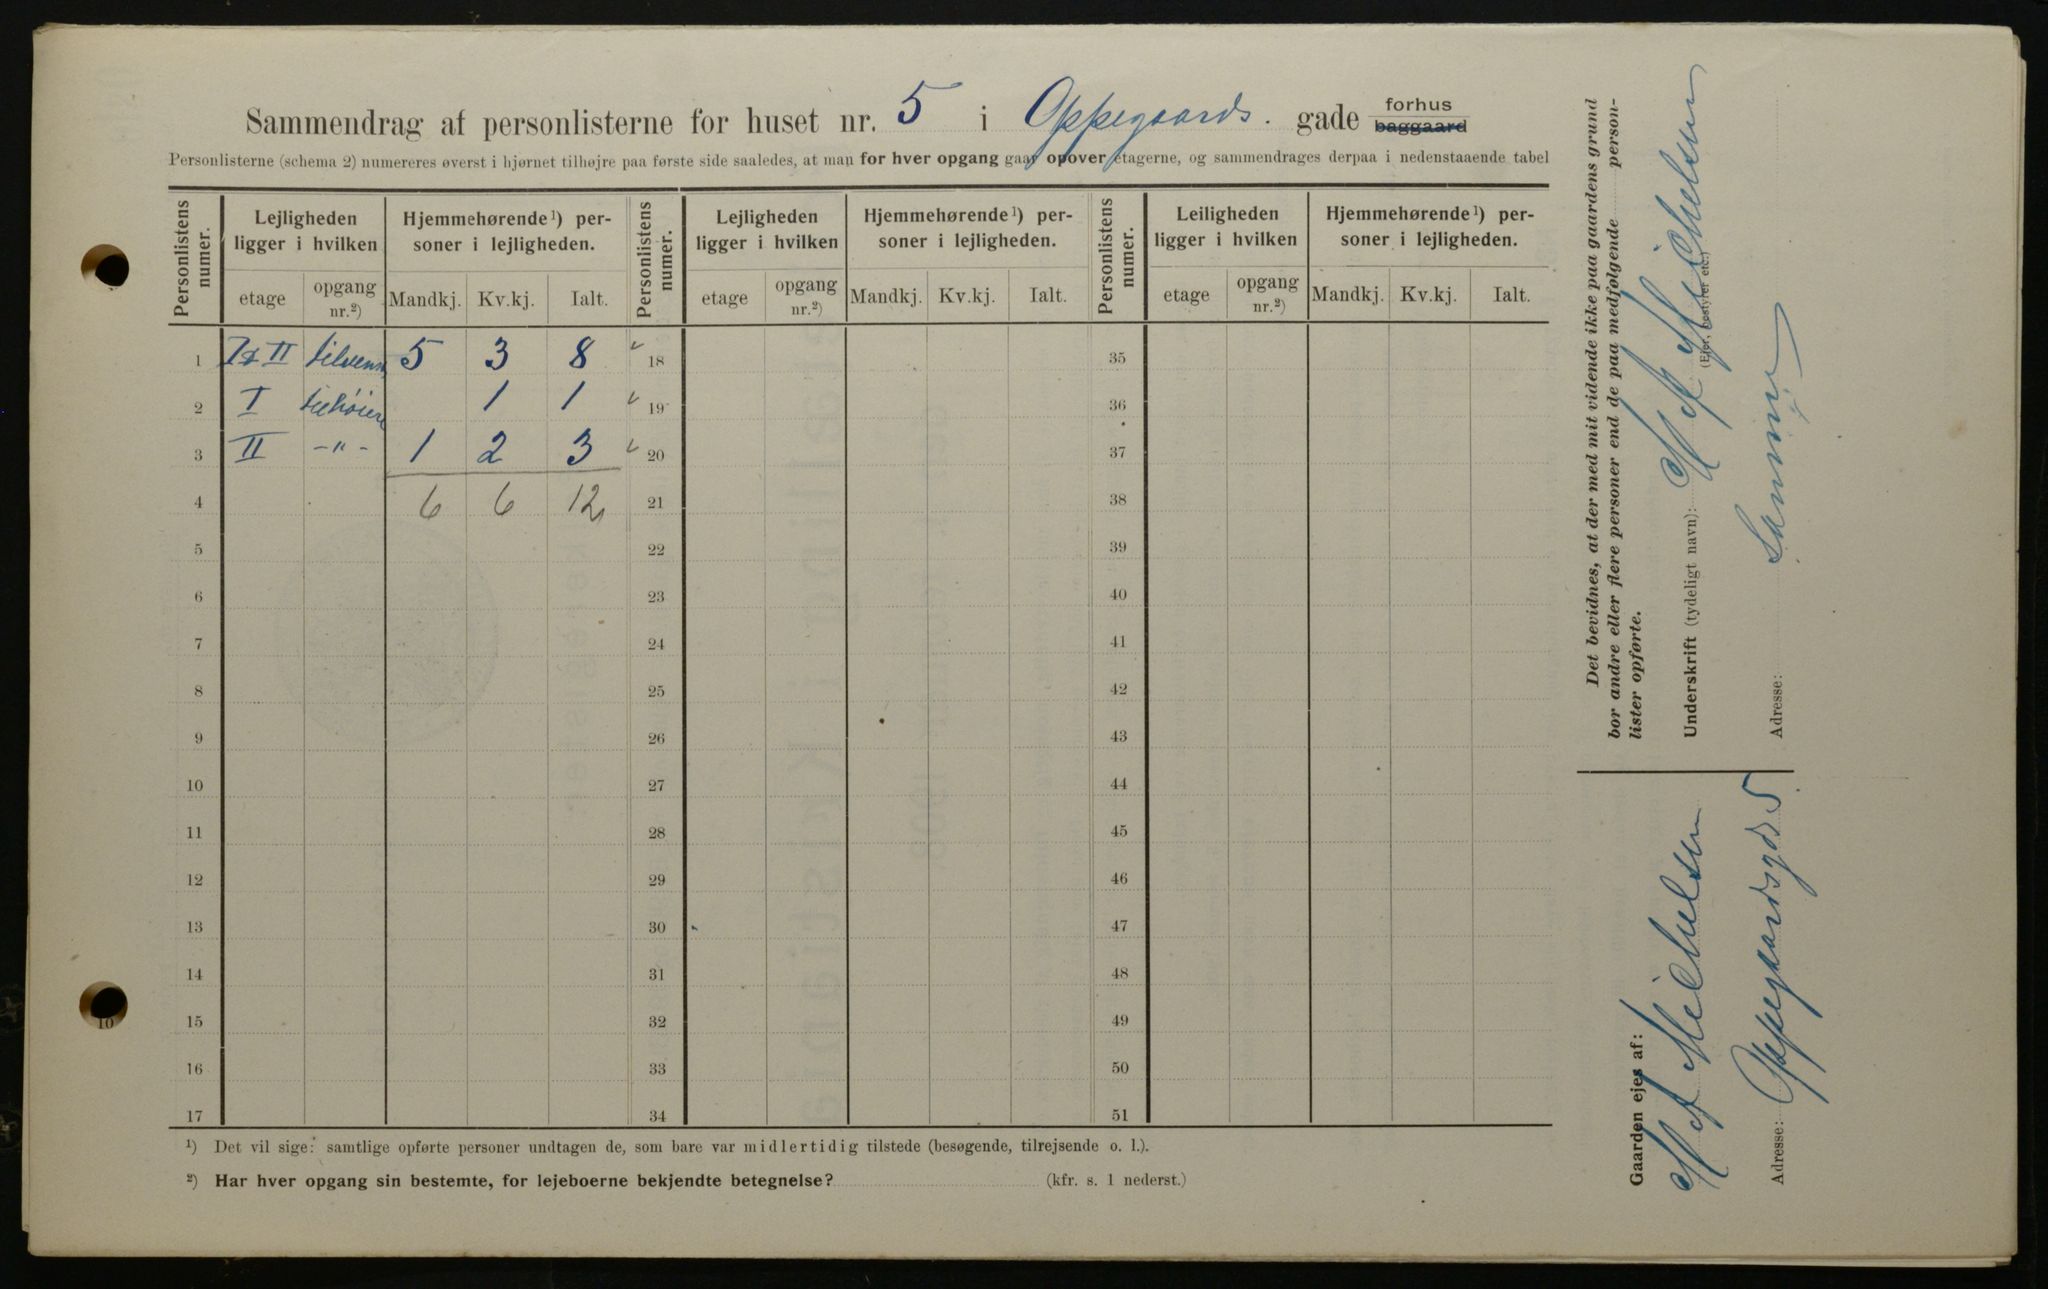 Sammendrag af personlisterne for huset nr. 5 i Oppegaards. gade forhus baggaard
Personlisterne (schema 2) numereres øverst i hjørnet tilhøjre paa første side saaledes, at man for hver opgang gaar opover etagerne, og sammendrages derpaa i nedenstaaende tabel
Personlistens numer. Lejligheden ligger i hvilken Hjemmehørende¹) personer i lejligheden. Personlistens numer. Lejligheden ligger i hvilken Hjemmehørende¹) personer i lejligheden. Personlistens numer. Leiligheden ligger i hvilken Hjemmehørende¹) personer i lejligheden.
etage opgang nr.²) Mandkj. Kv.kj. Ialt. etage opgang nr.²) Mandkj. Kv.kj. Ialt. etage opgang nr.²) Mandkj. Kv.kj. Ialt.
1 I & II tilvenst 5 3 8 18 35
2 I tilhöire 1 1 19 36
3 II -"- 1 2 3 20 37
4 6 6 12 21 38
5 22 39
6 23 40
7 24 41
8 25 42
9 26 43
10 27 44
11 28 45
12 29 46
13 30 47
14 31 48
15 32 49
16 33 50
17 34 51
¹) Det vil sige: samtlige opførte personer undtagen de, som bare var midlertidig tilstede (besøgende, tilrejsende o. l.).
²) Har hver opgang sin bestemte, for lejeboerne bekjendte betegnelse? (kfr. s. 1 nederst.)
10
Det bevidnes, at der med mit vidende ikke paa gaardens grund
bor andre eller flere personer end de paa medfølgende person-
lister opførte.
Underskrift (tydeligt navn): Michelsen
(Ejer, bestyrer etc.)
Adresse: Samme
Gaarden ejes af:
Michelsen
Adresse: Oppegaardsgds 5.